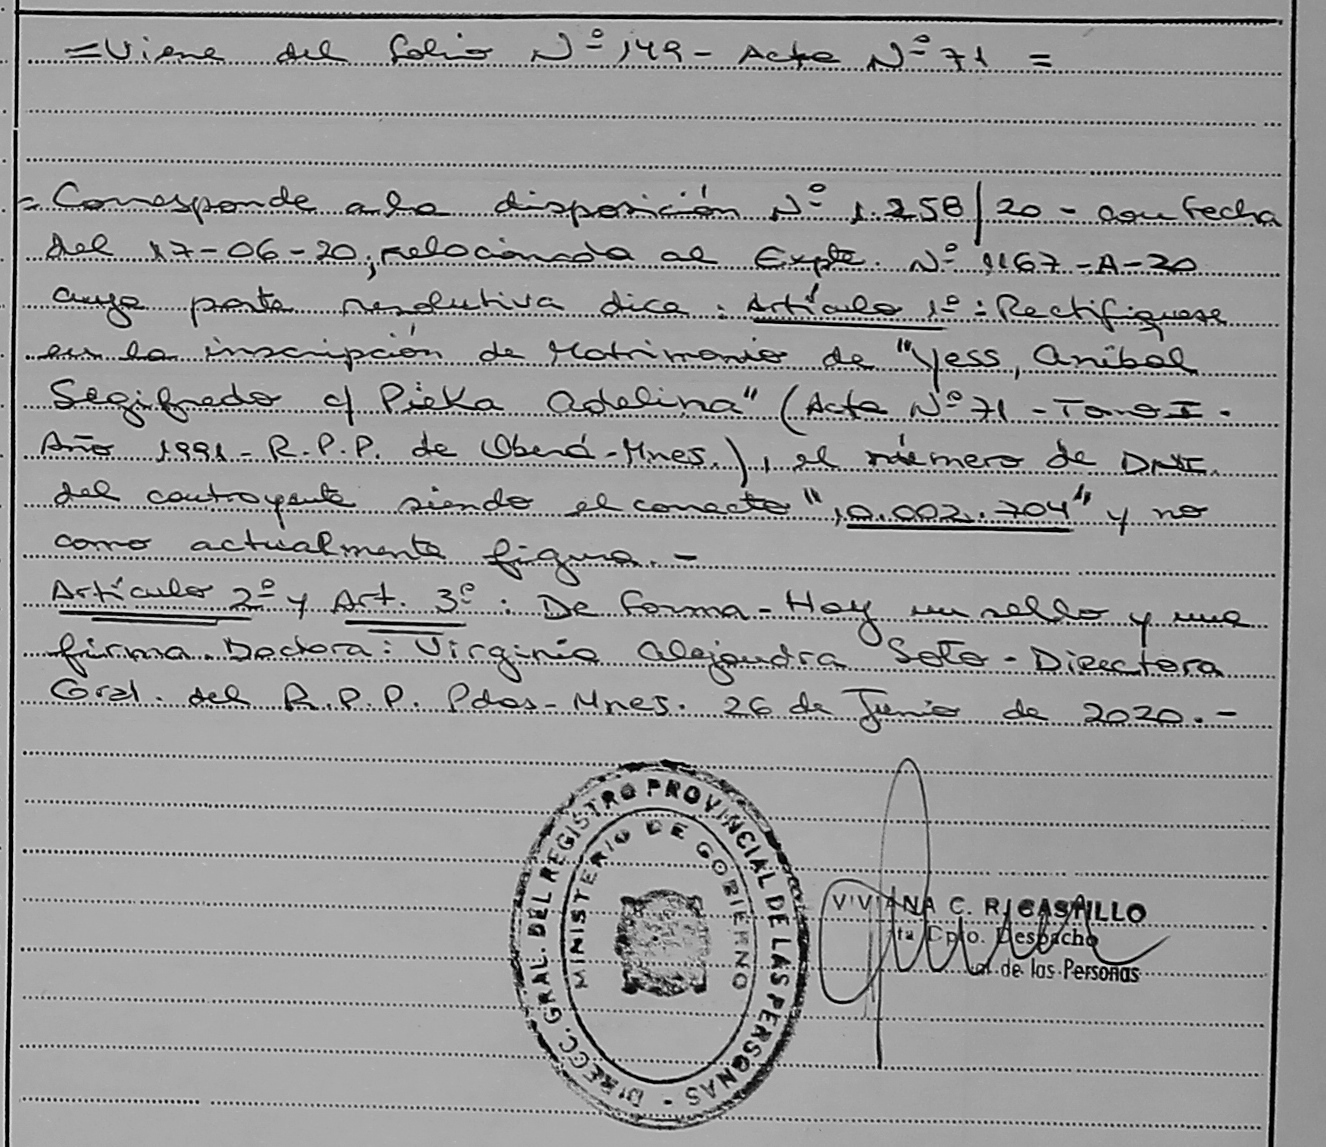 =Viene del folio Nº 149- Acta Nº 71 =
= Corresponde a la disposición Nº 1.258/20 - con fecha
del 17-06-20, relacionada al Expte. Nº 1167-A-20
cuya parte resolutiva dice: Artículo 1º: Rectifíquese
en la inscripción de Matrimonio de "Yess, Aníbal
Segifredo c/ Pieka Adelina" (Acta Nº 71 - Tomo I -
Año 1991 - R.P.P. de Oberá - Mnes.), el número de DNI.
del contrayente siendo el correcto "10.002.704" y no
como actualmente figura.-
Artículo 2º y Art. 3º: De forma - Hay un sello y una
firma. Doctora: Virginia Alejandra Soto - Directora
Gral. del R.P.P. Pdas - Mnes. 26 de Junio de 2020.-
DIRECC. GRAL. DEL REGISTRO PROVINCIAL DE LAS PERSONAS -
MINISTERIO DE GOBIERNO
VIVIANA C. RICASTILLO
Dpto. Despacho
de las Personas